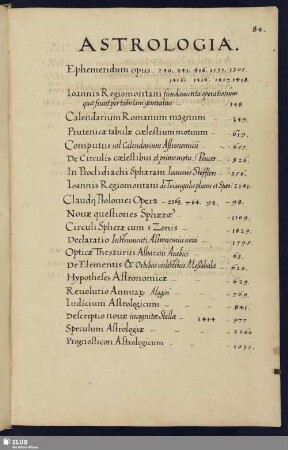 84.
ASTROLOGIA.
Ephemeridum opus. 240. 241. 416. 1537. 1305.
1416. 1419. 1417. 1418.
Ioannis Regiomontani fundamenta operationum
quæ fiunt per tabulam generalem - 148
Calendarium Romanum magnum - 549.
Prutenicæ tabulæ cœlestium motuum - 659.
Computus vel Calendarium Astronomicũ - 657.
De Circulis cœlestibus et primo motu. Peucer - 826.
In Procli diadochi Sphæram Ioannis Stoffleri - 356.
Ioannis Regiomontani di Triangulis planis et Sphær. 2141.
Claudij Ptolomei Opera - 2163. 764. 92. - 98.
Nouæ questiones Sphæræ - 1109.
Circuli Spheræ cum 5 Zonis - 1829.
Declaratio Instrumenti Astronomici noui - 1795.
Opticæ Thesaurus Alhazeni Arabis - 65.
De Elementis & Orbibus cœlestibus Messahala - 620.
Hypotheses Astronomicæ - 629.
Reuolutio Annuaȝ Alagin - 769.
Iudicium Astrologicum - 841.
Descriptio nouæ incognitæ Stellæ - 1414. - 977
Speculum Astrologiæ - 2260
Prognosticon Astrologicum - 1035.
SLUB